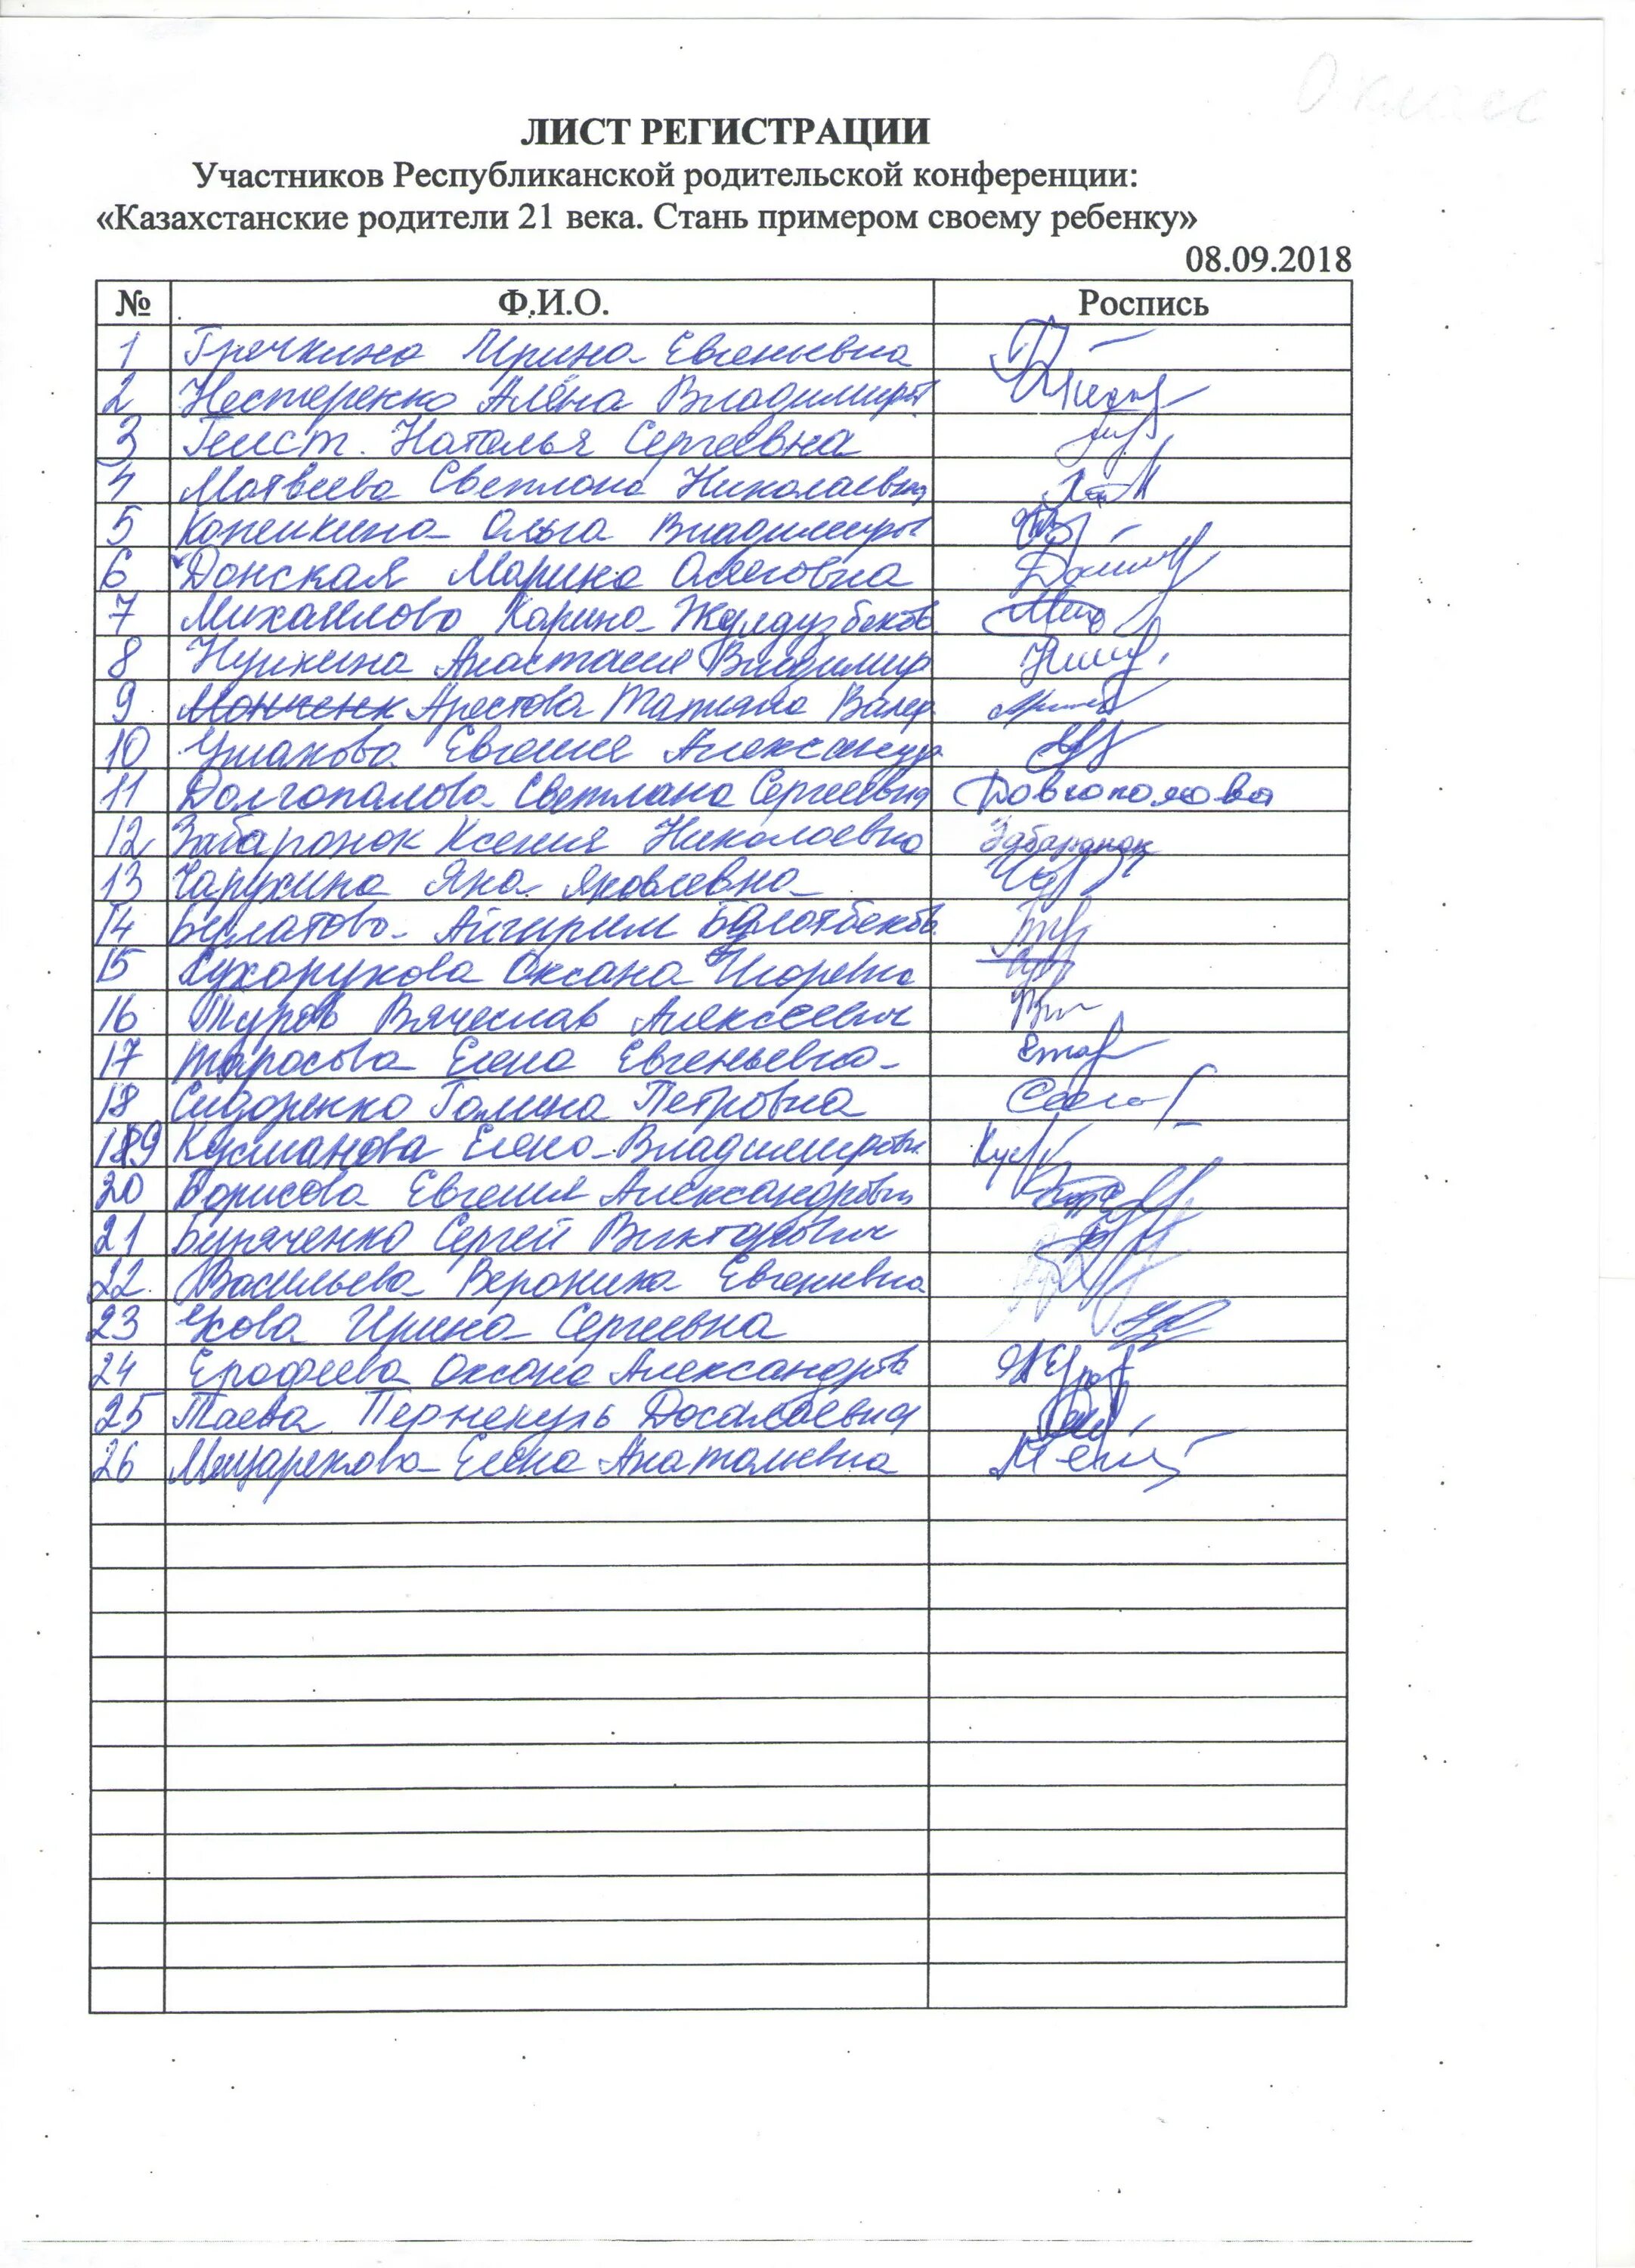 0 класс
ЛИСТ РЕГИСТРАЦИИ
Участников Республиканской родительской конференции:
«Казахстанские родители 21 века. Стань примером своему ребенку»
08.09.2018
№ Ф.И.О. Роспись
1 Гречкина Ирина Евгеньевна
2 Нестеренко Алёна Владимир
3 Гейст. Наталья Сергеевна
4 Матвеева Светлана Николаевна
5 Копейкина Ольга Владимиров
6 Донская Марина Олеговна
7 Михайлова Карина Жулдузбеков.
8 Анастасия Владимир
9 Арестова Татьяна Валер.
10 Ушакова Евгения Александр
11 Долгопалова Светлана Сергеевна Довгополова
12 Забаронок Ксения Николаевна Забаронок
13 Чарухина Яна Яковлевна
14 Булатова Айгирим Болотбеков.
15 Сухорукова Оксана Игоревна
16 Туров Вячеслав Алексеевич
17 Тарасова Елена Евгеньевна
18 Сидоренко Галина Петровна
19 Кусманова Елена Владимировн.
20 Борисова Евгения Александровн
21 Буряченко Сергей Викторович
22. Васильева Вероника Евгеньевна
23 Ирина Сергеевна
24 Ерофеева Оксана Александров
25 Таева Пернекуль Досалаевна
26 Елена Анатольевна